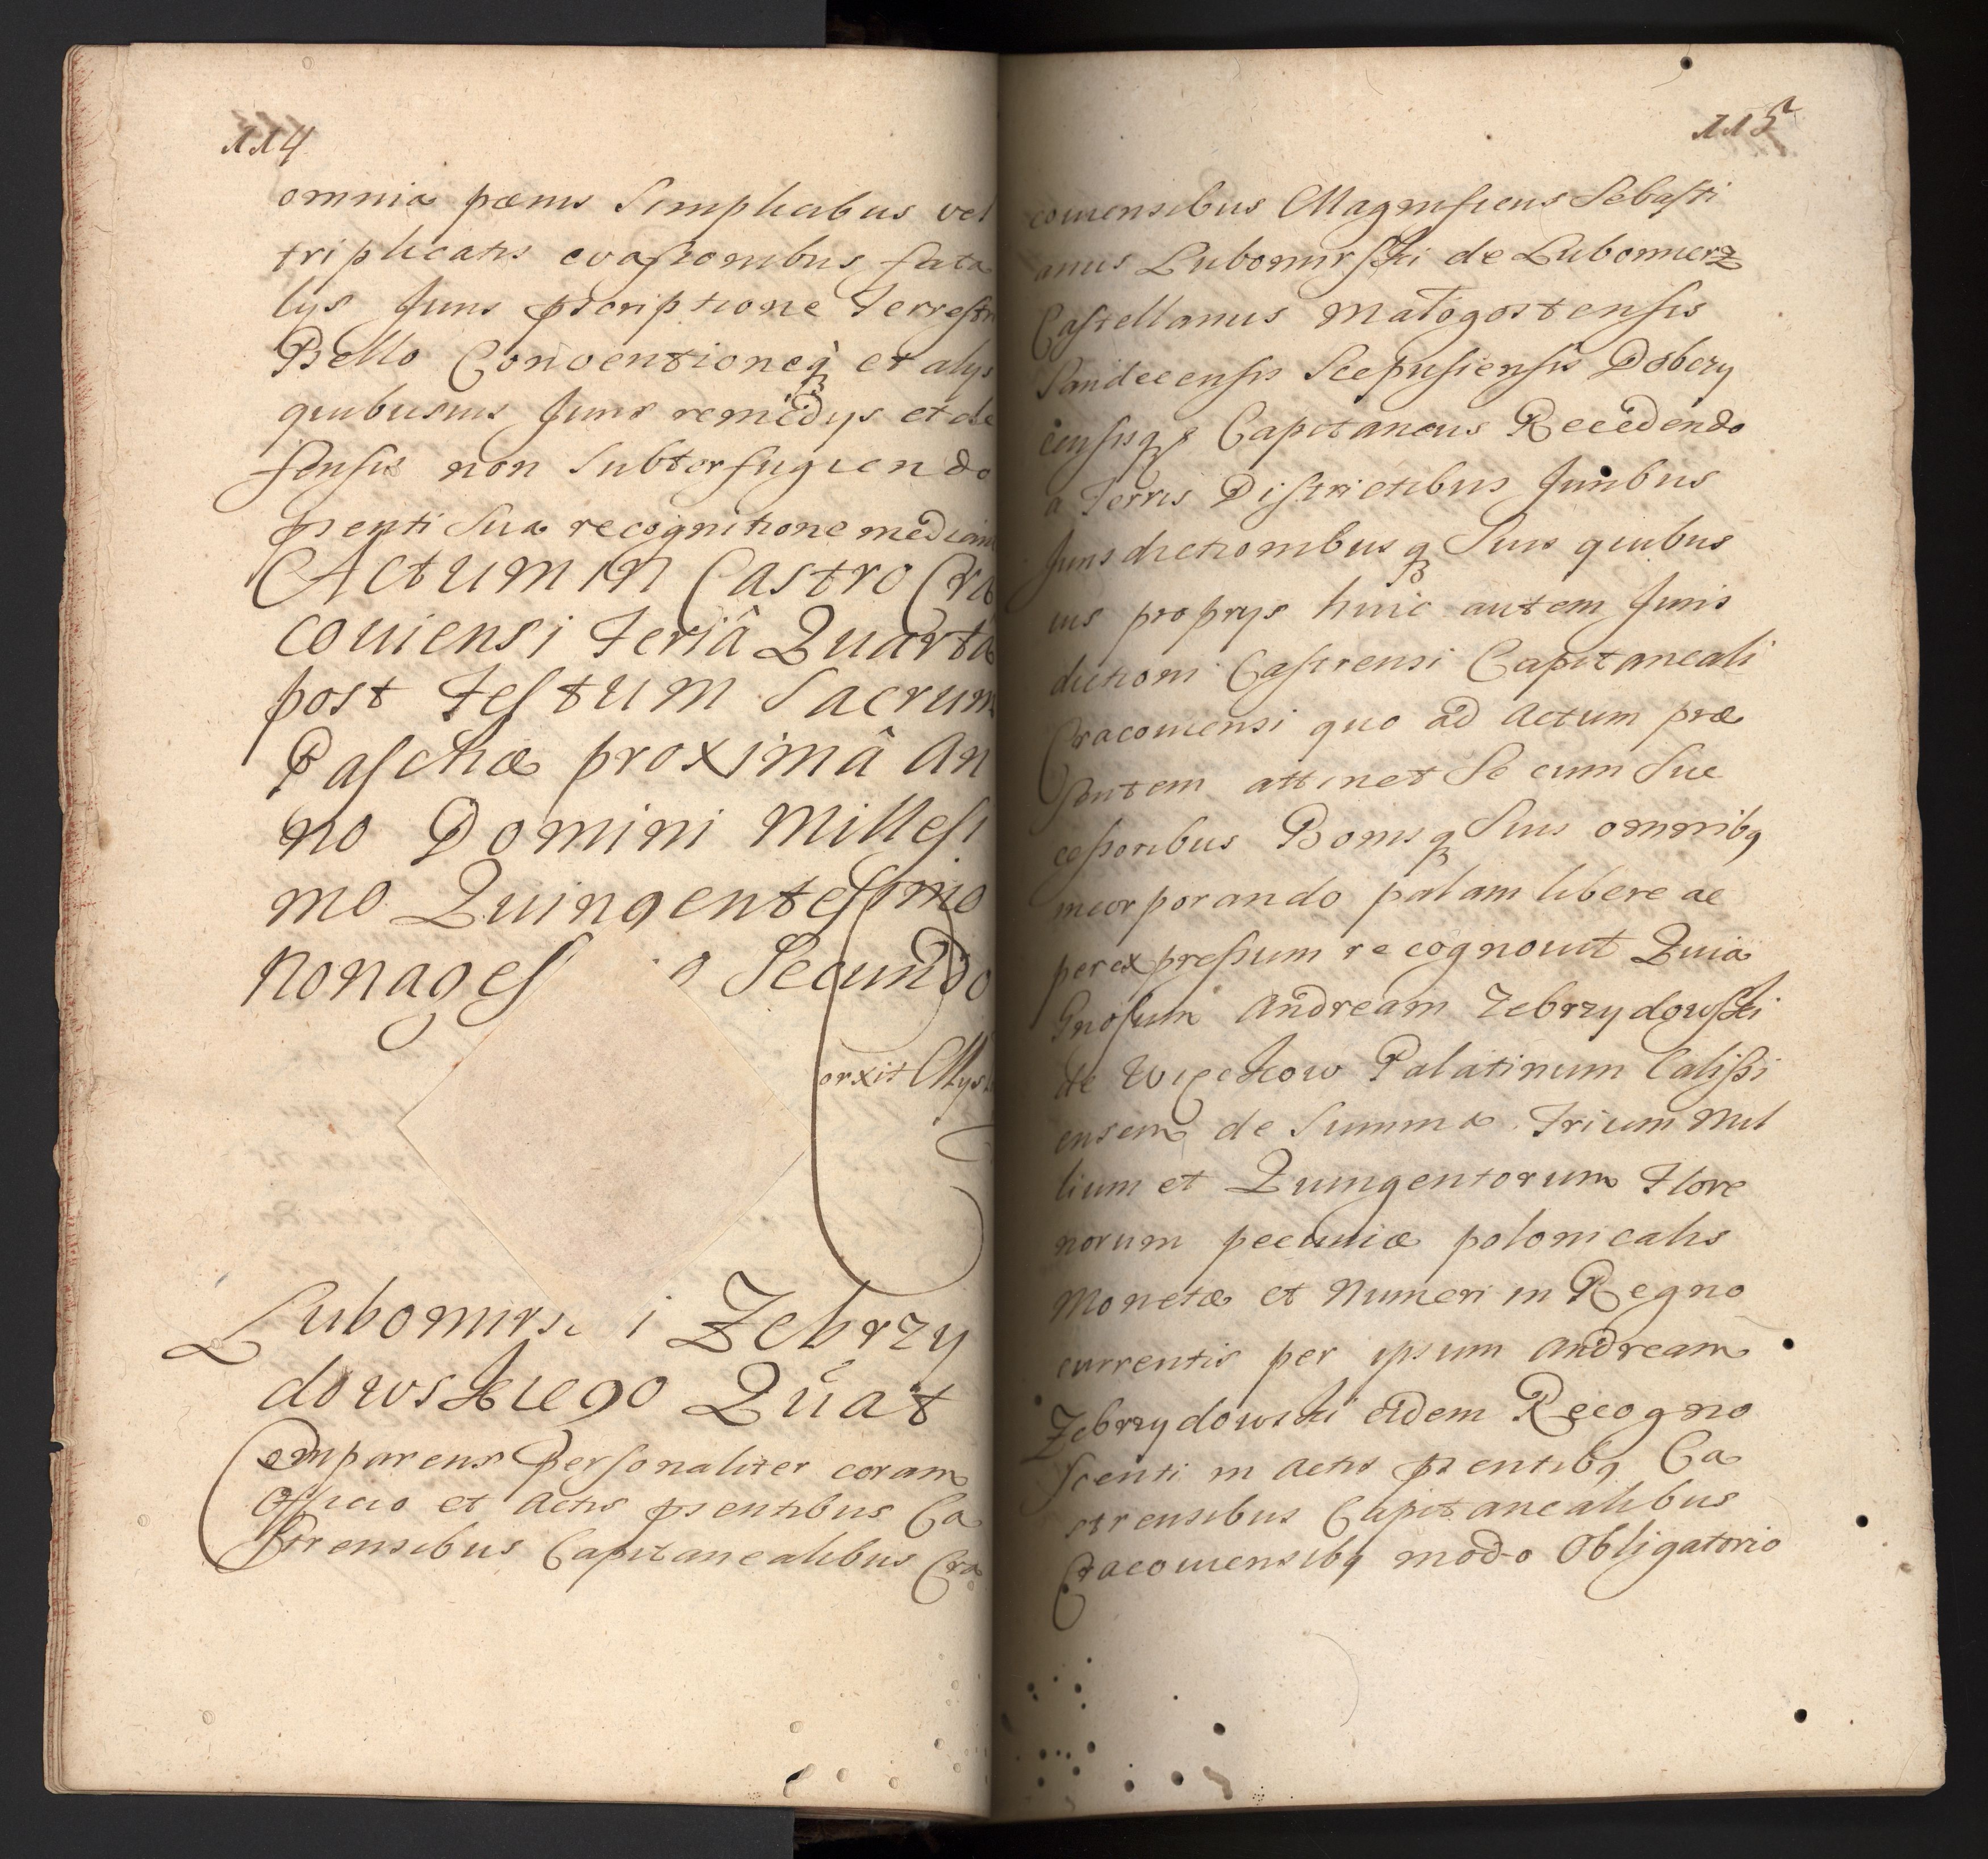 114
omnia pœnis simplicibus vel
triplicatis evasionibus fata
lys Juris pscriptione Terrestri
Bello Conventioneq3 et alys
quibusuis Juris remedys et de
fensis non Subterfugiendo
psenti Sua recognitione mediante
Actum in Castro Cra
couiensi Feriâ Quarta
post Festum Sacrum
Paschæ proximâ An
no Domini Millesi
mo Quingentesimo
Nonages o Secundo
orxit Mys
Lubomirs i Zebrzy
dowskiego Quat
Comparens Personaliter coram
Officio et Actis psentibus Ca
strensibus Capitanealibus Cra
115
couiensibus Magnificus Sebasti
anus Lubomirski de Lubomierz
Castellanus Małogostensis
Sandecensis Scepusiensis Dobczy
censisq3 Capitaneus Recedendo
a Terris Districtibus Juribus
Jurisdictionibusq3 Suis quibus
uis proprys huic autem Juris
dictioni Castrensi Capitaneali
Cracouiensi quo ad Actum præ
sentem attinet Se cum Suc
cessoribus Bonisq3 Suis omnibq
incorporando palam libere ac
per expressum recognouit Quia
Gnosum Andream Zebrzydowski
de Więckow Palatinum Calissi
ensem de Summa Trium Mil
lium et Quingentorum Flore
norum pecuniæ polonicalis
Monetæ et Numeri in Regno
currentis per ipsum Andream
Zebrzydowski eidem Recogno
scenti in Actis psentibq Ca
strensibus Capitanealibus
Cracouiensibq modo Obligatorio